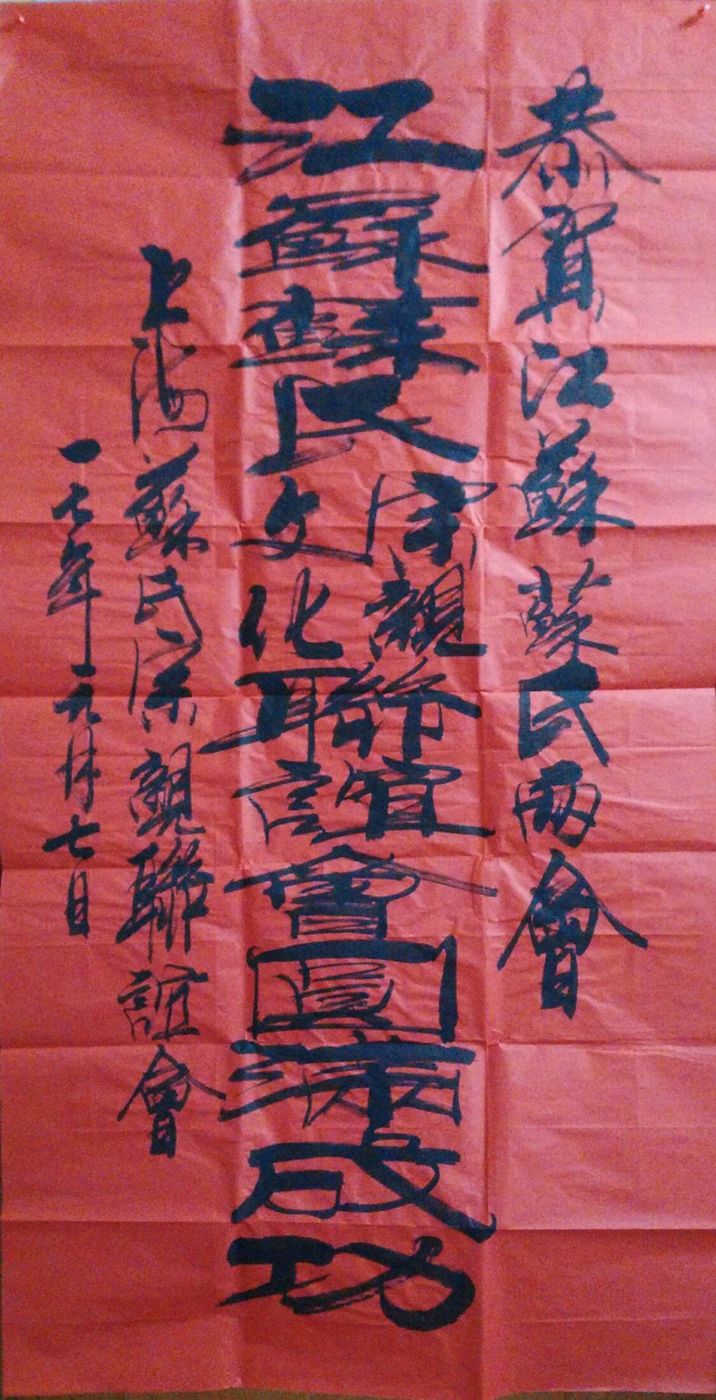 恭賀江蘇蘇氏兩會
江蘇蘇氏宗親文化聯誼會圓滿成功
上海蘇氏宗親聯誼會
一七年元月七日